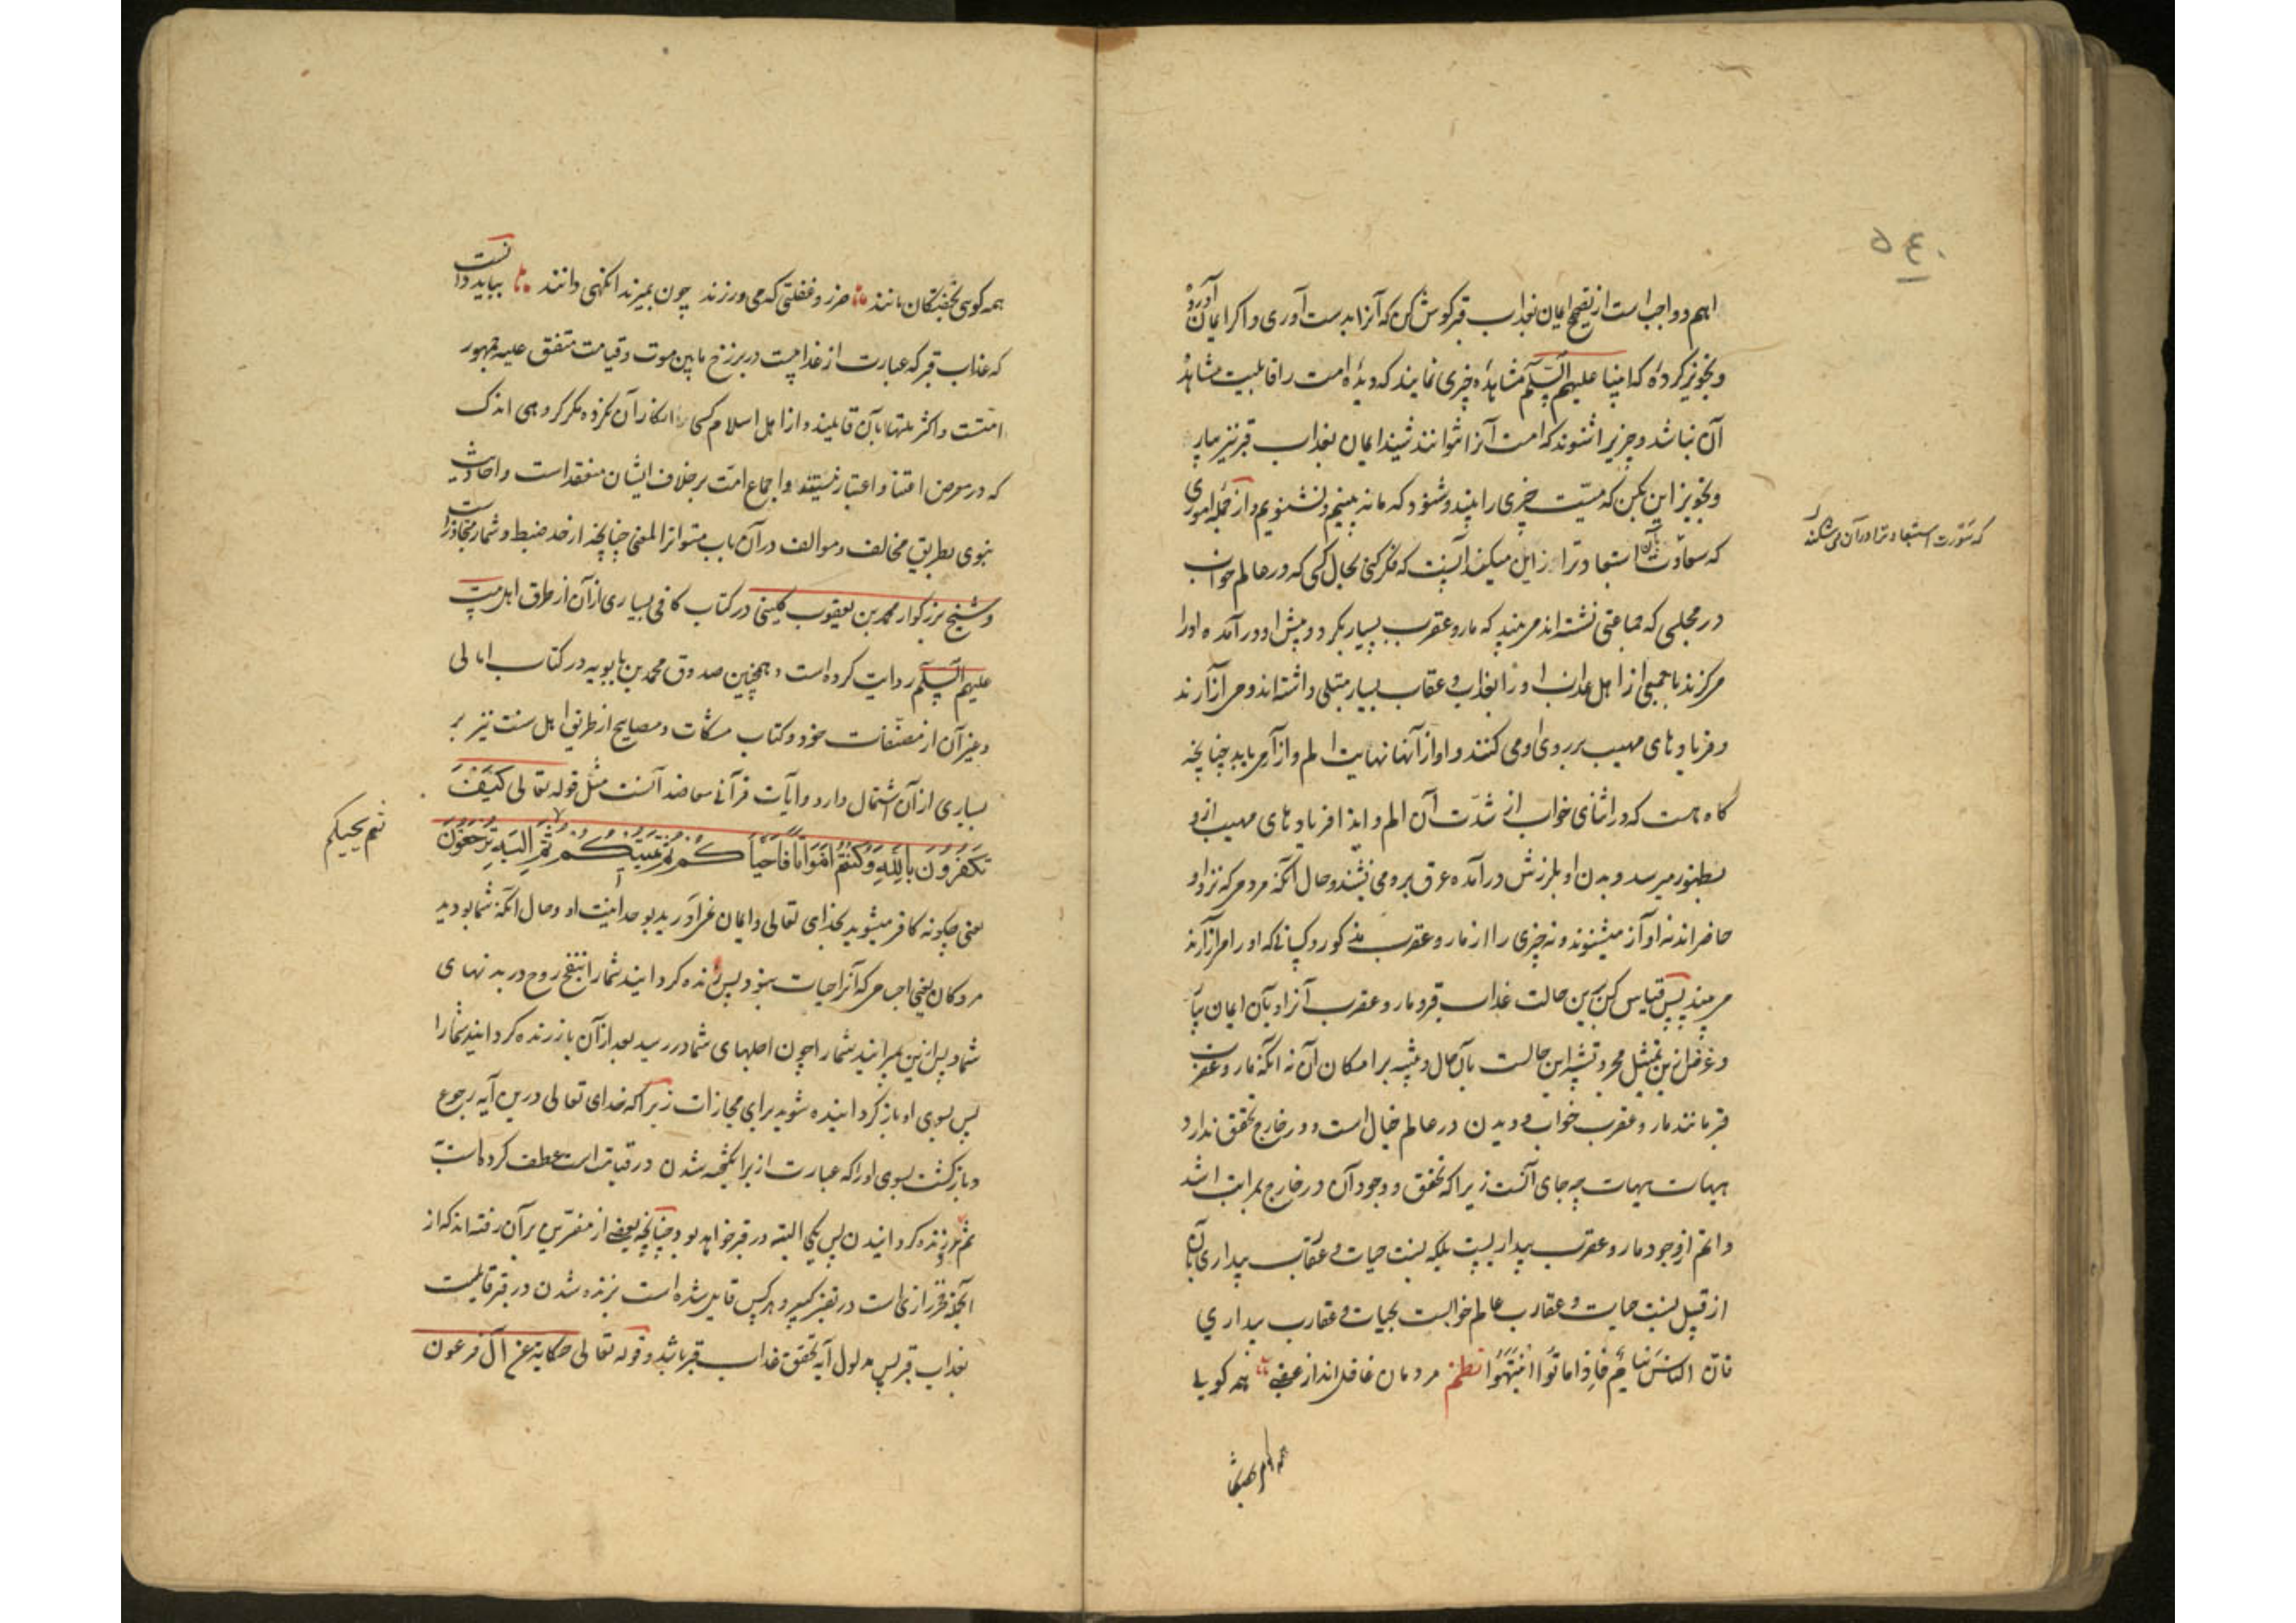 ۵٤۰
اهم و واجب است از تصحیح ایمان بعذاب قبر کوش کن که آنرا بدست آوری و اکر ایمان آورده
و تجویز کرده که انبیا علیهم السلم مشاهده چیزی نمایند که دیده امت را قابلیت مشاهده
آن نباشد و چیزیرا شنوند که امت آنرا نتوانند شنید ایمان بعذاب قبر نیز بیار
و تجویز این بکن که میت چیزی را بیند و شنود که ما نه بینیم و نشنویم و از جمله اموری
که استبعاد ترا ازین میکند آنست که فکر کنی بحال کسی که در عالم خواب
که سورت استبعاد ترا در آن می شکند
در مجلسی که جماعتی نشسته اند می بیند که مار و عقرب بسیار بکرد و پیش او در آمده او را
میکزند یا جمعی از اهل عدوان او را بعذاب و عقاب بسیار مبتلی داشته اند و می آزارند
و فریادهای مهیب بر روی او می کنند و او از آنها نهایت الم و آزار می یابد چنانچه
کاه هست که در اثنای خواب از شدت آن الم و ایذا فریادهای مهیب ازو
بظهور میرسد و بدن او بلرزش در آمده عرق برو می نشیند و حال آنکه مردمی که نزد او
حاضراند نه آواز میشنوند و نه چیزی را از مار و عقرب مذکور و کسانی که او را می آزارند
می بینند پس قیاس کن برین حالت عذاب قبر و مار و عقرب آنرا و بآن ایمان بیار
و غرض ازین تمثیل مجرد تشبیه این حالست بآن حال و تنبیه بر امکان آن نه آنکه مار و عقرب
قبر مانند مار و عقرب خواب دیدن در عالم خیال است و در خارج تحقق ندارد
هیهات هیهات چه جای آنست زیرا که تحقق و وجود آن در خارج بمراتب اشد
و اتم از وجود مار و عقرب بیداریست بلکه نسبت حیات و عقارب بیداری بآن
از قبیل نسبت حیات و عقارب عالم خوابست بحیات و عقارب بیداری
فان الناس نیام فاذا ماتوا انتبهوا نظم مردمان غافل اند از عقبی همه کویی
همه کوی بخفتکان مانند ضرر و غفلتی که می ورزند چون بمیرند انکهی دانند بباید دانست
که عذاب قبر که عبارت از عذابیست در برزخ مابین موت و قیامت متفق علیه جمهور
امتست و اکثر ملتها بآن قایلند و از اهل اسلام کسی انکار آن نکرده مکر کروهی اندک
که در معرض اعتنا و اعتبار نیستند و اجماع امت بر خلاف ایشان منعقد است و احادیث
نبوی بطریق مخالف و موالف در آن باب متواتر المعنی چنانچه از حد ضبط و شمار متجاوز است
و شیخ بزرکوار محمد بن یعقوب کلینی در کتاب کافی بسیاری از آن از طرق اهل بیت
علیهم السلم روایت کرده است و همچنین صدوق محمد بن بابویه در کتاب امالی
و غیر آن از مصنفات خود و کتاب مشکات و مصابیح از طریق اهل سنت نیز بر
بسیاری از آن اشتمال دارد و آیات قرآنی معاضد آنست مثل قوله تعالی کَیْفَ
تَکْفُرُونَ بِاللهِ وَکُنْتُمْ اَمْوَاتًا فَاَحْیَاکُمْ ثُمَّ یُمِیتُکُمْ ثُمَّ اِلَیْهِ تُرْجَعُونَ
ثم یحییکم
یعنی چکونه کافر میشوید بخدای تعالی و ایمان نمی آورید بوحدانیت او و حال انکه شما بودید
مردکان یعنی اجسامی که آنرا حیات نبود پس زنده کردانید شما را بنفخ روح در بدنهای
شما و پس ازین بمیرانید شما را چون اجلهای شما در رسید بعد از آن باز زنده کردانید شما را
پس بسوی او باز کردانیده شوید برای مجازات زیرا که خدای تعالی درین آیه رجوع
و بازکشت بسوی او را که عبارت از برانکیخته شدن در قیامت است عطف کرده است
زنده کردانیدن پس یکی البته در قبر خواهد بود چنانچه بعضی از مفسرین بر آن رفته اند که از
آنجمله فخر رازی است در تفسیر کبیر و هر کس قایل شده است بزنده شدن در قبر قایلست
بعذاب قبر پس مدلول آیه تحقق عذاب قبر باشد و قوله تعالی حکایة عن آل فرعون